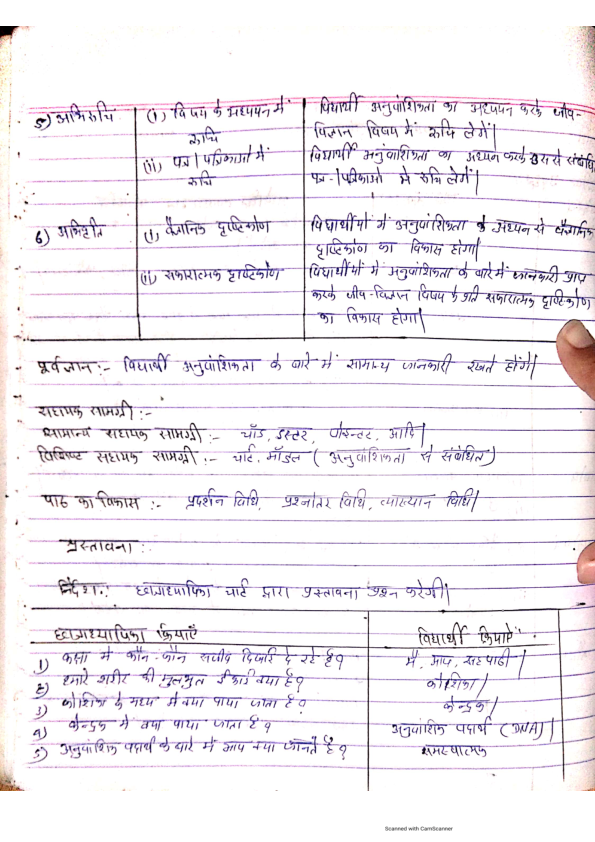 5) अभिरुचि (i) विषय के अध्ययन में रुचि विद्यार्थी अनुवांशिकता का अध्ययन करके जीव-
विज्ञान विषय में रुचि लेगें|
(ii) पत्र | पत्रिकाओ में रुचि विद्यार्थी अनुवांशिकता का अध्यन करके उस से संबंधित
पत्र-|पत्रिकाओ मे रुचि लेगें|
6) अभिवृति (i) वैज्ञानिक दृष्टिकोण विद्यार्थीयों में अनुवांशिकता के अध्यन से वैज्ञानिक
दृष्टिकोण का विकास होगा|
(ii) सकारात्मक दृष्टिकोण विद्यार्थीयों में अनुवांशिकता के बारे में जानकारी प्राप्त
करके जीव-विज्ञान विषय के प्रति सकारात्मक दृष्टिकोण
का विकास होगा|
पूर्वज्ञान :- विद्यार्थी अनुवांशिकता के बारे में सामान्य जानकारी रखते होंगे|
सहायक सामग्री :-
सामान्य सहायक सामग्री :- चॉक, डस्टर, पोइन्टर, आदि|
विशिष्ट सहायक सामग्री :- चार्ट, मॉडल ( अनुवांशिकता से संबंधित)
पाठ का विकास :- प्रदर्शन विधि, प्रश्नोतर विधि, व्याख्यान विधि|
प्रस्तावना :-
निर्देश :- छात्राध्यापिका चार्ट द्वारा प्रस्तावना प्रश्न करेगी|
छात्राध्यापिका क्रियाएँ विद्यार्थी क्रियाएँ :
1) कक्षा मे कौन-कौन सजीव दिखाई दे रहे है? मै, आप, सहपाठी |
2) हमारे शरीर की मुलभुत ईकाई क्या है? कोशिका|
3) कोशिका के मध्य मे क्या पाया जाता है? केन्द्रक|
4) केन्द्रक मे क्या पाया जाता है? अनुवांशिक पदार्थ (DNA)|
5) अनुवांशिक पदार्थ के बारे में आप क्या जानते है? समस्यात्मक
Scanned with CamScanner